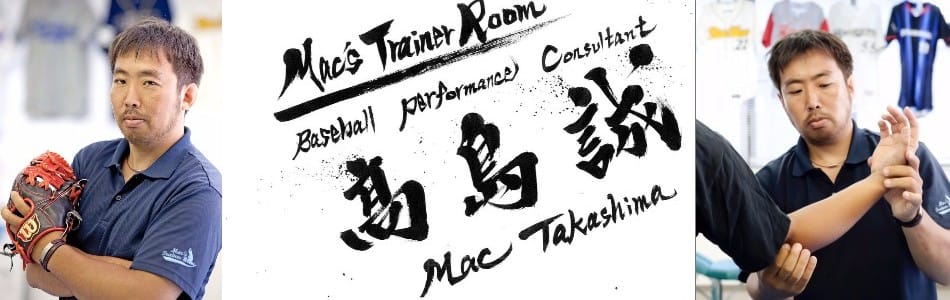 Mac's Trainer Room
Baseball Performance Consultant
髙島 誠
Mac Takashima
Mac's
Trainer